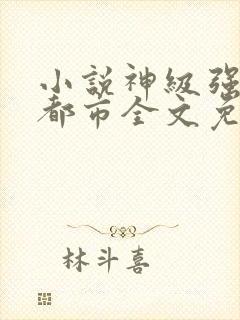 小説神級强
都市全文免
林斗喜